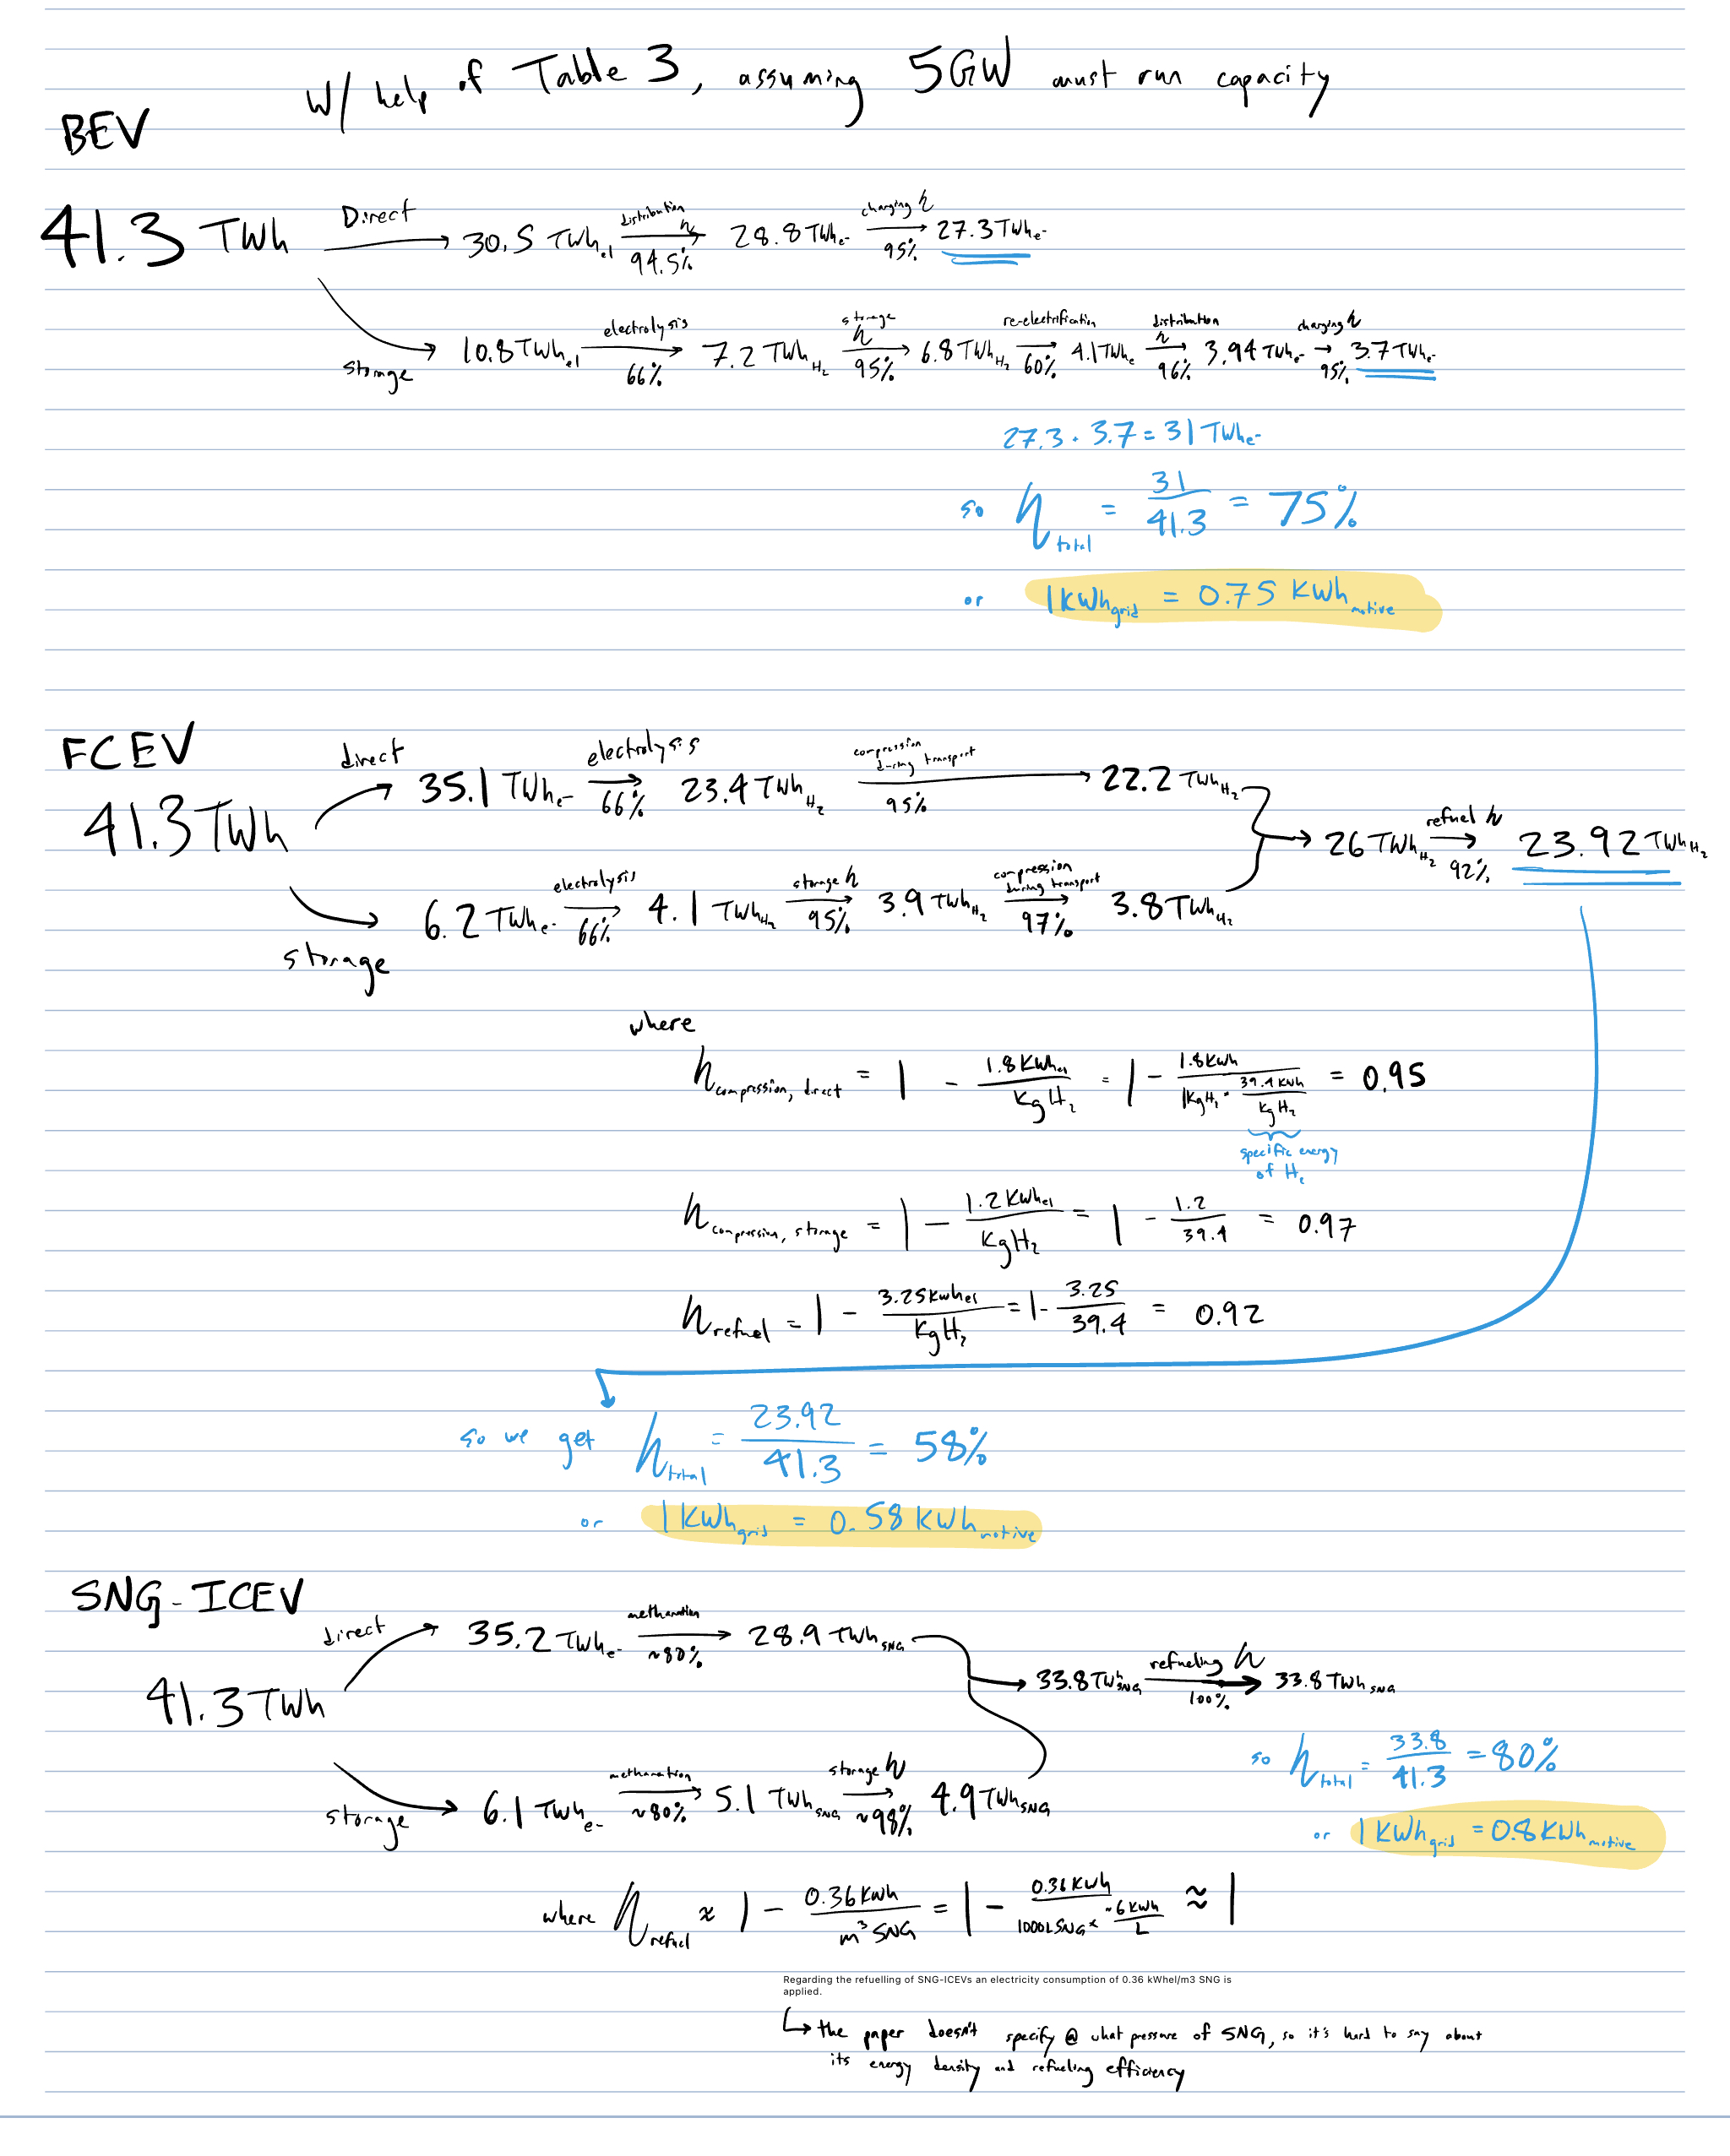 W/ help of Table 3, assuming 5GW must run capacity
BEV
41.3 TWh Direct 30.5 TWh el distribution η 94.5% 28.8 TWh e- charging η 95% 27.3 TWh e-
storage 10.8 TWh el electrolysis 66% 7.2 TWh H2 storage η 95% 6.8 TWh H2 re-electrification 60% 4.1 TWh e distribution η 96% 3.94 TWh e- charging η 95% 3.7 TWh e-
27.3 + 3.7 = 31 TWh e-
so η total = 31/41.3 = 75%
or 1 kWh grid = 0.75 kWh motive
FCEV
direct 35.1 TWh e- electrolysis 66% 23.4 TWh H2 compression during transport 95% 22.2 TWh H2
41.3 TWh
26 TWh H2 refuel η 92% 23.92 TWh H2
storage 6.2 TWh e- electrolysis 66% 4.1 TWh H2 storage η 95% 3.9 TWh H2 compression during transport 97% 3.8 TWh H2
where
η compression, direct = 1 - 1.8 kWh el/kg H2 = 1 - 1.8 kWh/(1 kg H2 · 39.4 kWh/kg H2) = 0.95
specific energy of H2
η compression, storage = 1 - 1.2 kWh el/kg H2 = 1 - 1.2/39.4 = 0.97
η refuel = 1 - 3.25 kWh el/kg H2 = 1 - 3.25/39.4 = 0.92
so we get η total = 23.92/41.3 = 58%
or 1 kWh grid = 0.58 kWh motive
SNG-ICEV
direct 35.2 TWh e- methanation ~80% 28.9 TWh SNG
33.8 TWh SNG refueling η 100% 33.8 TWh SNG
41.3 TWh
so η total = 33.8/41.3 = 80%
storage 6.1 TWh e- methanation ~80% 5.1 TWh SNG storage η ~98% 4.9 TWh SNG
or 1 kWh grid = 0.8 kWh motive
where η refuel ≈ 1 - 0.36 kWh/m³ SNG = 1 - 0.36 kWh/(1000 L SNG × ~6 kWh/L) ≈ 1
Regarding the refuelling of SNG-ICEVs an electricity consumption of 0.36 kWhel/m3 SNG is
applied.
the paper doesn't specify @ what pressure of SNG, so it's hard to say about
its energy density and refueling efficiency